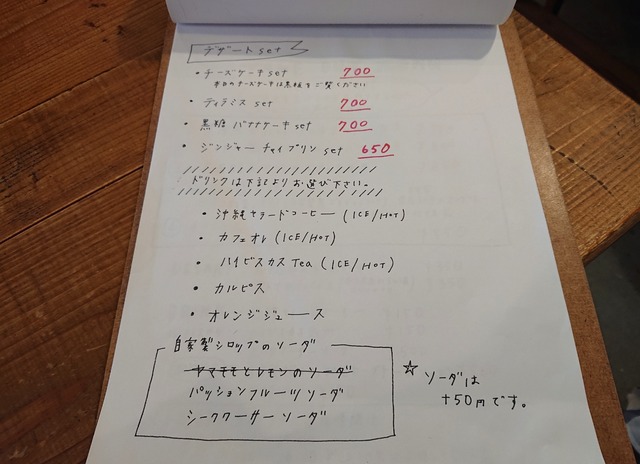 デザートset
・チーズケーキ set 700
本日のチーズケーキは黒板をご覧ください
・ティラミス set 700
・黒糖 バナナケーキ set 700
・ジンジャー チャイプリン set 650
ドリンクは下記よりお選び下さい。
・沖縄セラードコーヒー (ICE/HOT)
・カフェオレ (ICE/HOT)
・ハイビスカス Tea (ICE/HOT)
・カルピス
・オレンジジュース
自家製シロップのソーダ
ヤマモモとレモンのソーダ
パッションフルーツソーダ
シークワーサーソーダ
☆ソーダは
+50円です。